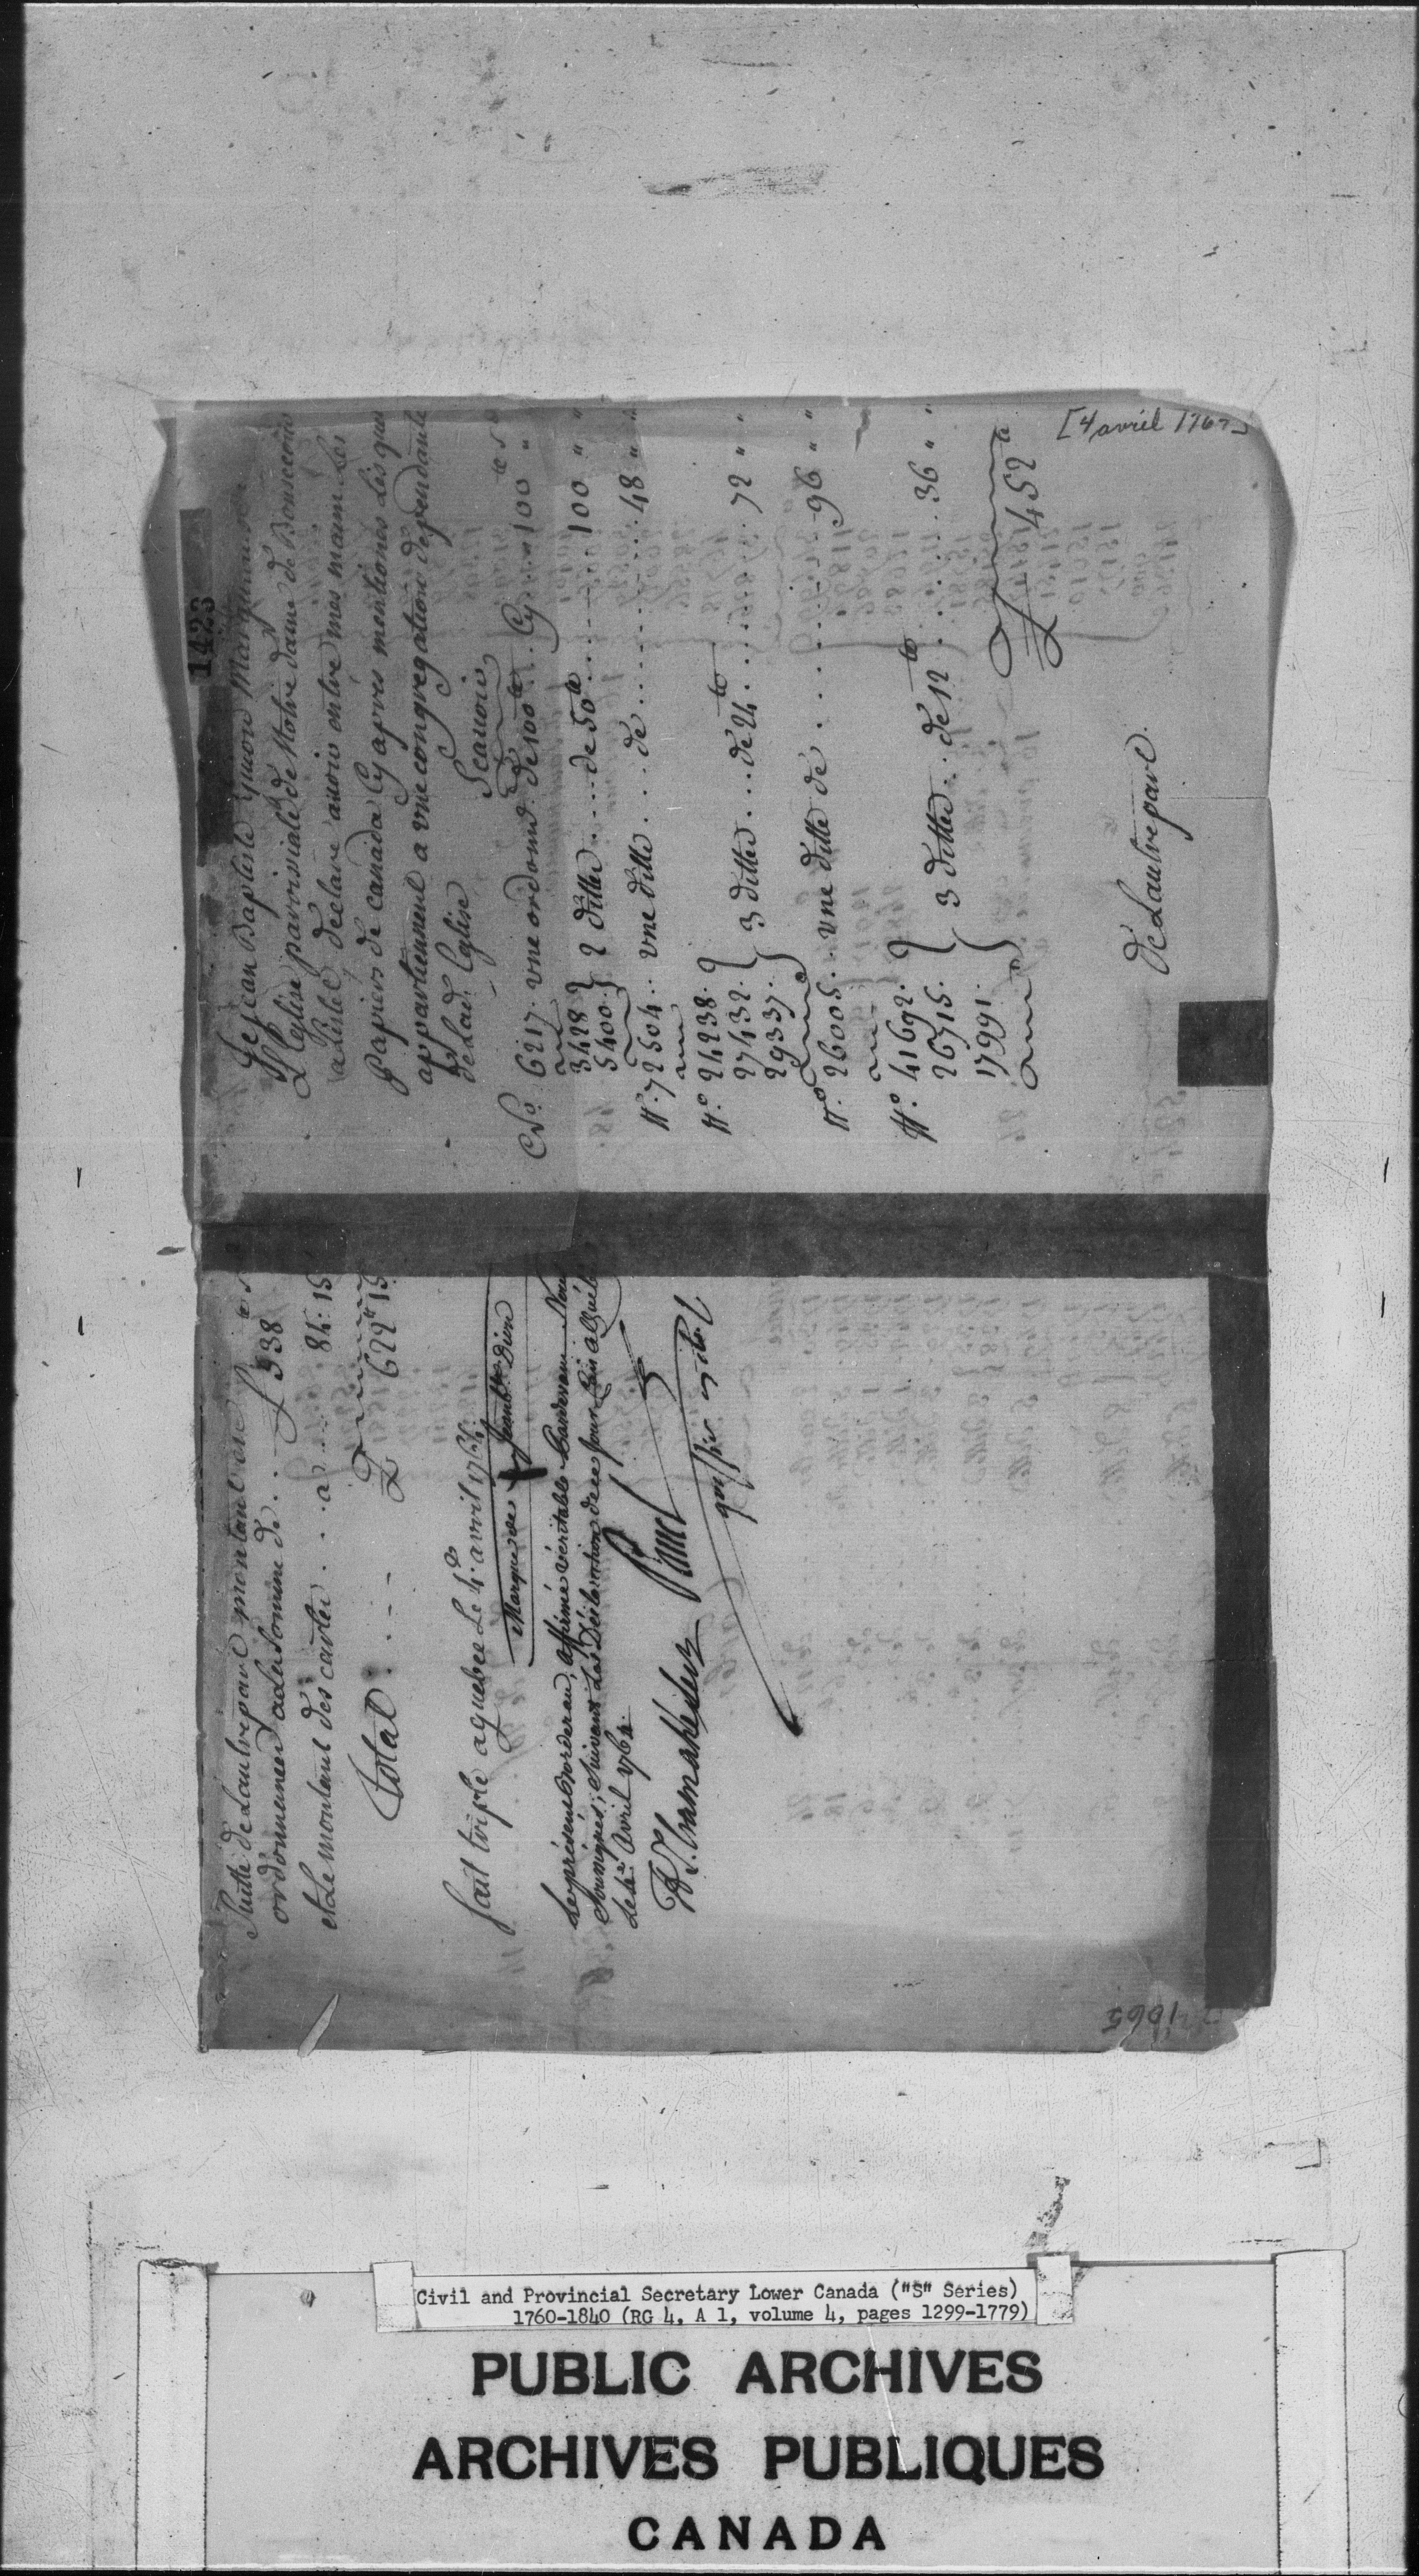 1423
Je jean Baptiste guion Marguiller de
L'Eglise paroissiale de Notre dame de Bonsecours
a Lislet declare auoir entre mes mains Les
Papiers de canada Cy apres mentionés Lesquels
appartiennent a vne congregation dependante
de Lad. Eglise
Scauoir
No. 6217. vne ordonce de 100lt .. Cy .... 100 "
3428 } 2 dittes .... de 50lt ....... 100 "
5400 }
No. 72504 .. vne ditte ... de ........... 48 "
No. 24238. }
27432. } 3 dittes .... de 24lt ........ 72 " "
29337. }
No. 26005. . vne ditte de ............ 96 " "
No. 41692. }
26715. } 3 dittes .. de 12lt ........ 36 " "
17991. }
452lt
De Lautre part.
[4 avril 1767]
Suitte de Lautre part montant des
ordonnances a La Somme de .. 538lt
et Le montant des cartes .. a .... 84: 15
Total . . - - 622lt 15
fait triple a quebec Le 4e. avril 1764
Marque de + Jean Bte Dion
Le présent Borderau, affirmé véritable Pardevant Nous
Soussignés, Suivant La Déclaration de ce jour Lui a Québec
Le 4e. Avril 1764.
Panet
greffier
Civil and Provincial Secretary Lower Canada ("S" Series)
1760-1840 (RG 4, A 1, volume 4, pages 1299-1779)
PUBLIC ARCHIVES
ARCHIVES PUBLIQUES
CANADA